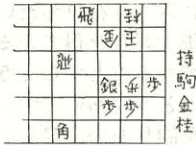 飛 桂
金 玉
飛
銀 歩 歩
歩 歩
角
持駒 金桂